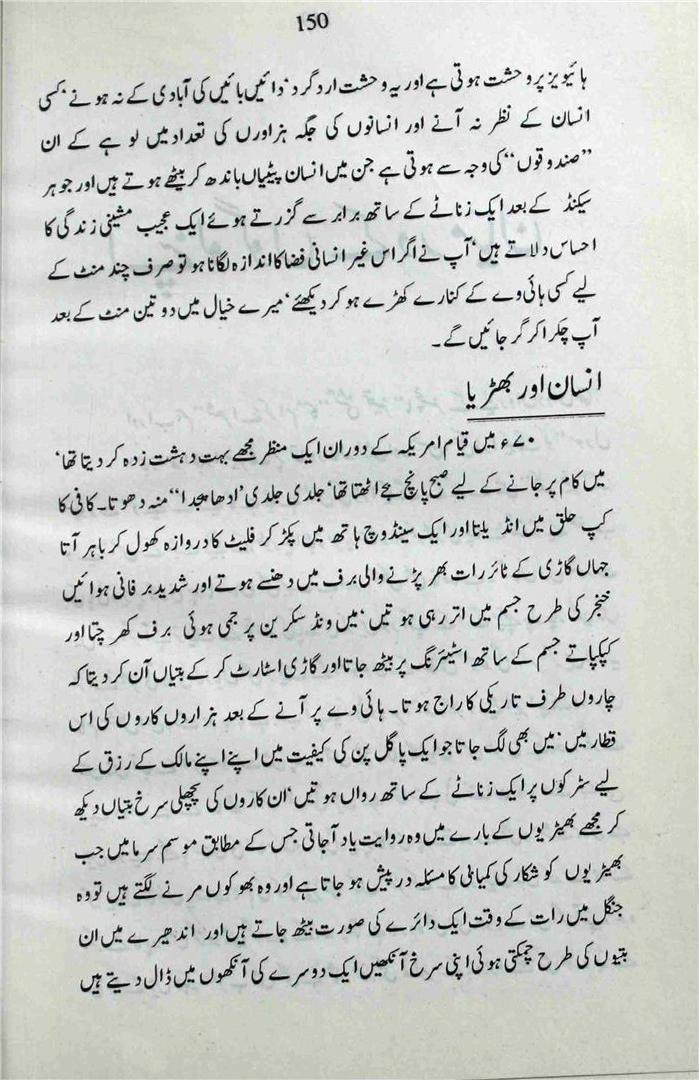 150
ہائیویز پر وحشت ہوتی ہے اور یہ وحشت ارد گرد‘ دائیں بائیں کی آبادی کے نہ ہونے‘ کسی
انسان کے نظر نہ آنے اور انسانوں کی جگہ ہزاورں کی تعداد میں لوہے کے ان
”صندوقوں“ کی وجہ سے ہوتی ہے جن میں انسان پیٹیاں باندھ کر بیٹھے ہوتے ہیں اور جو ہر
سیکنڈ کے بعد ایک زناٹے کے ساتھ برابر سے گزرتے ہوئے ایک عجیب مشینی زندگی کا
احساس دلاتے ہیں‘ آپ نے اگر اس غیر انسانی فضا کا اندازہ لگانا ہو تو صرف چند منٹ کے
لیے کسی ہائی وے کے کنارے کھڑے ہو کر دیکھئے‘ میرے خیال میں دو تین منٹ کے بعد
آپ چکرا کر گر جائیں گے۔
انسان اور بھڑیا
۷۰ء میں قیام امریکہ کے دوران ایک منظر مجھے بہت دہشت زدہ کر دیتا تھا‘
میں کام پر جانے کے لیے صبح پانچ بجے اٹھتا تھا‘ جلدی جلدی ’ادھا پچدا“ منہ دھوتا۔ کافی کا
کپ حلق میں انڈیلتا اور ایک سینڈوچ ہاتھ میں پکڑ کر فلیٹ کا دروازہ کھول کر باہر آتا
جہاں گاڑی کے ٹائر رات بھر پڑنے والی برف میں دھنسے ہوتے اور شدید برفانی ہوائیں
خنجر کی طرح جسم میں اتر رہی ہوتیں‘ میں ونڈ سکرین پر جمی ہوئی برف کھرچتا اور
کپکپاتے جسم کے ساتھ اسٹیئرنگ پر بیٹھ جاتا اور گاڑی اسٹارٹ کر کے بتیاں آن کر دیتا کہ
چاروں طرف تاریکی کا راج ہوتا۔ ہائی وے پر آنے کے بعد ہزاروں کاروں کی اس
قطار میں‘ میں بھی لگ جاتا جو ایک پاگل پن کی کیفیت میں اپنے اپنے مالک کے رزق کے
لیے سڑکوں پر ایک زناٹے کے ساتھ رواں ہوتیں‘ ان کاروں کی پچھلی سرخ بتیاں دیکھ
کر مجھے بھیڑیوں کے بارے میں وہ روایت یاد آجاتی جس کے مطابق موسم سرما میں جب
بھیڑیوں کو شکار کی کمیابی کا مسئلہ درپیش ہو جاتا ہے اور وہ بھوکوں مرنے لگتے ہیں تو وہ
جنگل میں رات کے وقت ایک دائرے کی صورت بیٹھ جاتے ہیں اور اندھیرے میں ان
بتیوں کی طرح چمکتی ہوئی اپنی سرخ آنکھیں ایک دوسرے کی آنکھوں میں ڈال دیتے ہیں